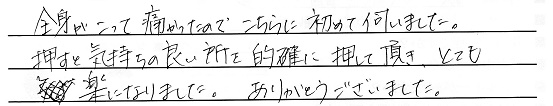 全身がこって痛かったのでこちらに初めて伺いました。
押すと気持ちの良い所を的確に押して頂き、とても
楽になりました。ありがとうございました。